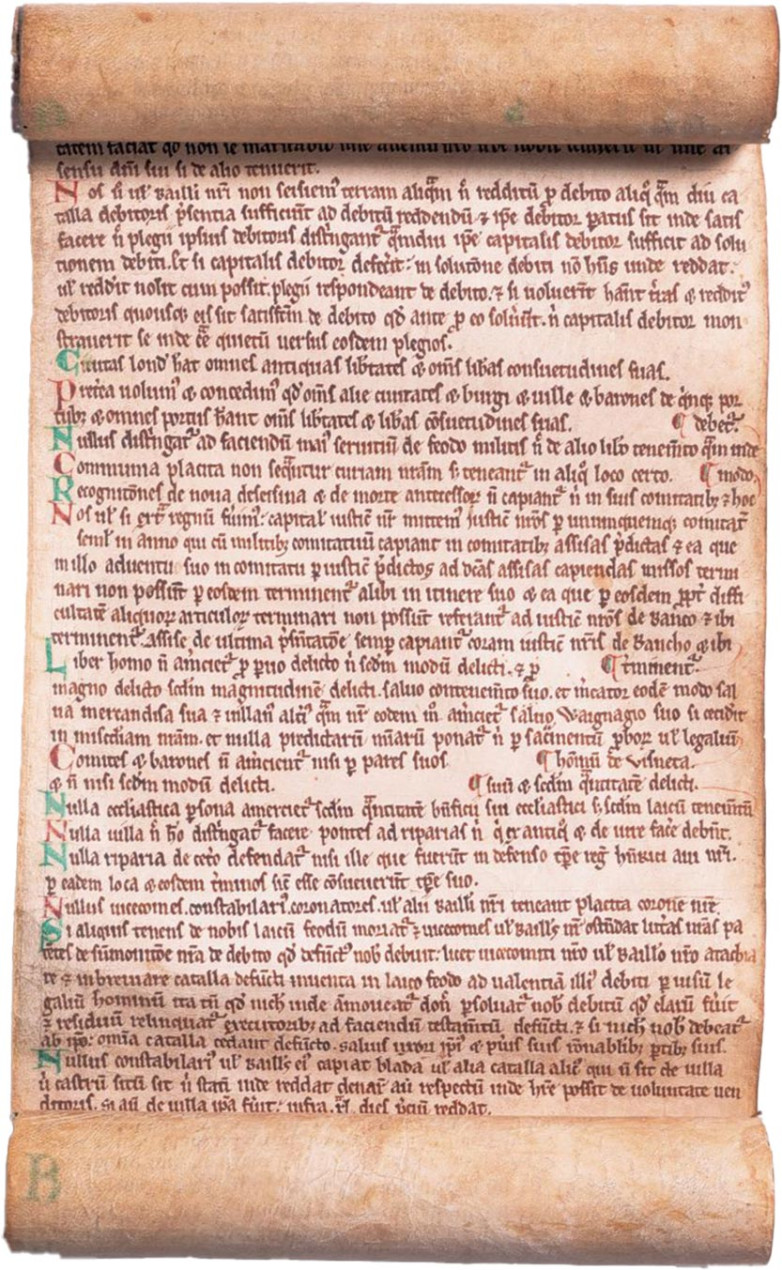 sensu dñi sui si de alio tenuerit.
Nos ũ ul' Bailli nri non seisiem' terram aliqm ñ redditũ p debito aliq̃ qm diu ca
talla debitoris p̃sentia sufficiũt ad debitũ reddendũ ⁊ ip̃e debitor patus sit inde satis
facere ñ plegii ipsius debitoris distrĩgant' q̃mdiu ip̃e capitalis debitor sufficit ad solu
tionem debiti. Et si capitalis debitor defecit: in solutõne debiti nõ hñs unde reddat.
ul' reddẽ nolit cum possit. plegii respondeant de debito. ⁊ si noluerĩt hãnt t̃ras ⁊ reddit'
debitoris quousq; eis sit satisf̃tm de debito qd ante p eo solũit. ñ capitalis debitor mon
straverit se inde ẽe quietũ uersus eosdem plegios.
Ciuitas lond' hãt omnes antiquas lib̃tates ⁊ om̃s lib̃as consuetudines suas.
Pret̃ea uolum' ⁊ concedim' qd om̃s alie ciuitates ⁊ burgi ⁊ uille ⁊ barones de q̃nq; por
tub; ⁊ omnes portus hãnt om̃s lib̃tates ⁊ lib̃as cõsuetudines suas. ¶ debet'.
Nullus distrĩgat' ad faciendũ mai' seruitiũ de feodo militis ñ de alio lib̃o tenem̃to q̃m inde
Communia placita non seq̃ntur curiam nr̃am s; teneant' in aliq̃ loco certo. ¶ modo.
Recognitõnes de noua deseisina ⁊ de morte antecessor' ñ capiant' ñ in suis comitatib; ⁊ hoc
Nos ul' si ext̃ regnũ fuim': capital' iustic' nr̃ mittem' justic' nr̃os p unumquemq; comitat'
semł in anno qui cũ militib; comitatuũ capiant in comitatib; assisas p̃dictas ⁊ ea que
in illo aduentu suo in comitatu p iustic' p̃dictos ad dc̃as assisas capiendas missos termi
nari non possũt p eosdem terminent' alibi in itinere suo ⁊ ea que p eosdem ppt̃ diffi
cultatẽ aliquor' articulor' terminari non possũt referant' ad iustic' nr̃os de Banco ⁊ ibi
terminent'. Assise de ultima p̃sñtatõe semp capiant' coram iustic' nr̃is de Bancho ⁊ ibi
Liber homo ñ am̃ciet' p p̃uo delicto ñ scdm modũ delicti. ⁊ p ¶ t̃minent'.
magno delicto scdm magnitudinẽ delicti. saluo contenem̃to suo. et m̃cator eodẽ modo sal
ua mercandisa sua ⁊ uillan' alt̃i' q̃m nr̃ eodem m̃ am̃ciet' saluo Waignagio suo si ceciderit
in mis̃diam nr̃am. et nulla predictarũ mĩarũ ponat' ñ p sacrmentũ p̃bor' ul' legaliũ
Comites ⁊ barones ñ am̃cient' nisi p pares suos ¶ hõm̃ũ de Visneto.
⁊ ñ nisi scdm modũ delicti. ¶ suũ ⁊ scdm q̃ntitatẽ delicti.
Nulla eccl̃iastica p̃sona amerciet' scdm q̃ntitatẽ bñficii sui eccl̃iastici s; scdm laicũ tenem̃tũ
Nulla uilla ñ hõ distrĩgat' facere pontes ad riparias ñ q̃ ex antiq̃ ⁊ de iure fac̃e debñt.
Nulla riparia de cet̃o defendat' nisi ille que fuerũt in defenso tp̃e reg' hñrici aui nr̃i.
p eadem loca ⁊ eosdem t̃minos sic' esse cõsueuerũt tp̃e suo.
Nullus uicecomes. constabulari'. coronatores. ul' alii Bailli nr̃i teneant placita corone nr̃e.
Si aliquis tenens de nobis laicũ feodũ moriat' ⁊ uicecomes ul' Baill's nr̃ ostẽdat litt̃as nr̃as pa
tẽtes de sũmonitõe nr̃a de debito qd defũct' nob' debuit: licet uicecomiti nr̃o ul' Baill'o nr̃o atachia
re ⁊ inbreuiare catalla defũcti inuenta in laico feodo ad ualentiã illi' debiti p uisũ le
galiũ hominũ ita tñ qd nich' inde amoueat' don' p̃soluat' nob' debitũ qd clarũ fũit
⁊ residuũ relinquat' executorib; ad faciendũ testam̃tũ defũcti. ⁊ si nich' nob' debeat'
ab ip̃o: omĩa catalla cedant defũcto. saluis uxori ip̃i' ⁊ pũis suis rõnabilib; ptib; suis.
Nullus constabulari' ul' Baill's ei' capiat blada ul' alia catalla alic' qui ñ sit de uilla
ũ castrũ sitũ sit ñ stati' inde reddat denar' aũ respectũ inde hr̃e possit de uoluntate uen
ditoris. Si aũ de uilla ip̃a fũit: infra .xl. dies p̃ciũ reddat.
B